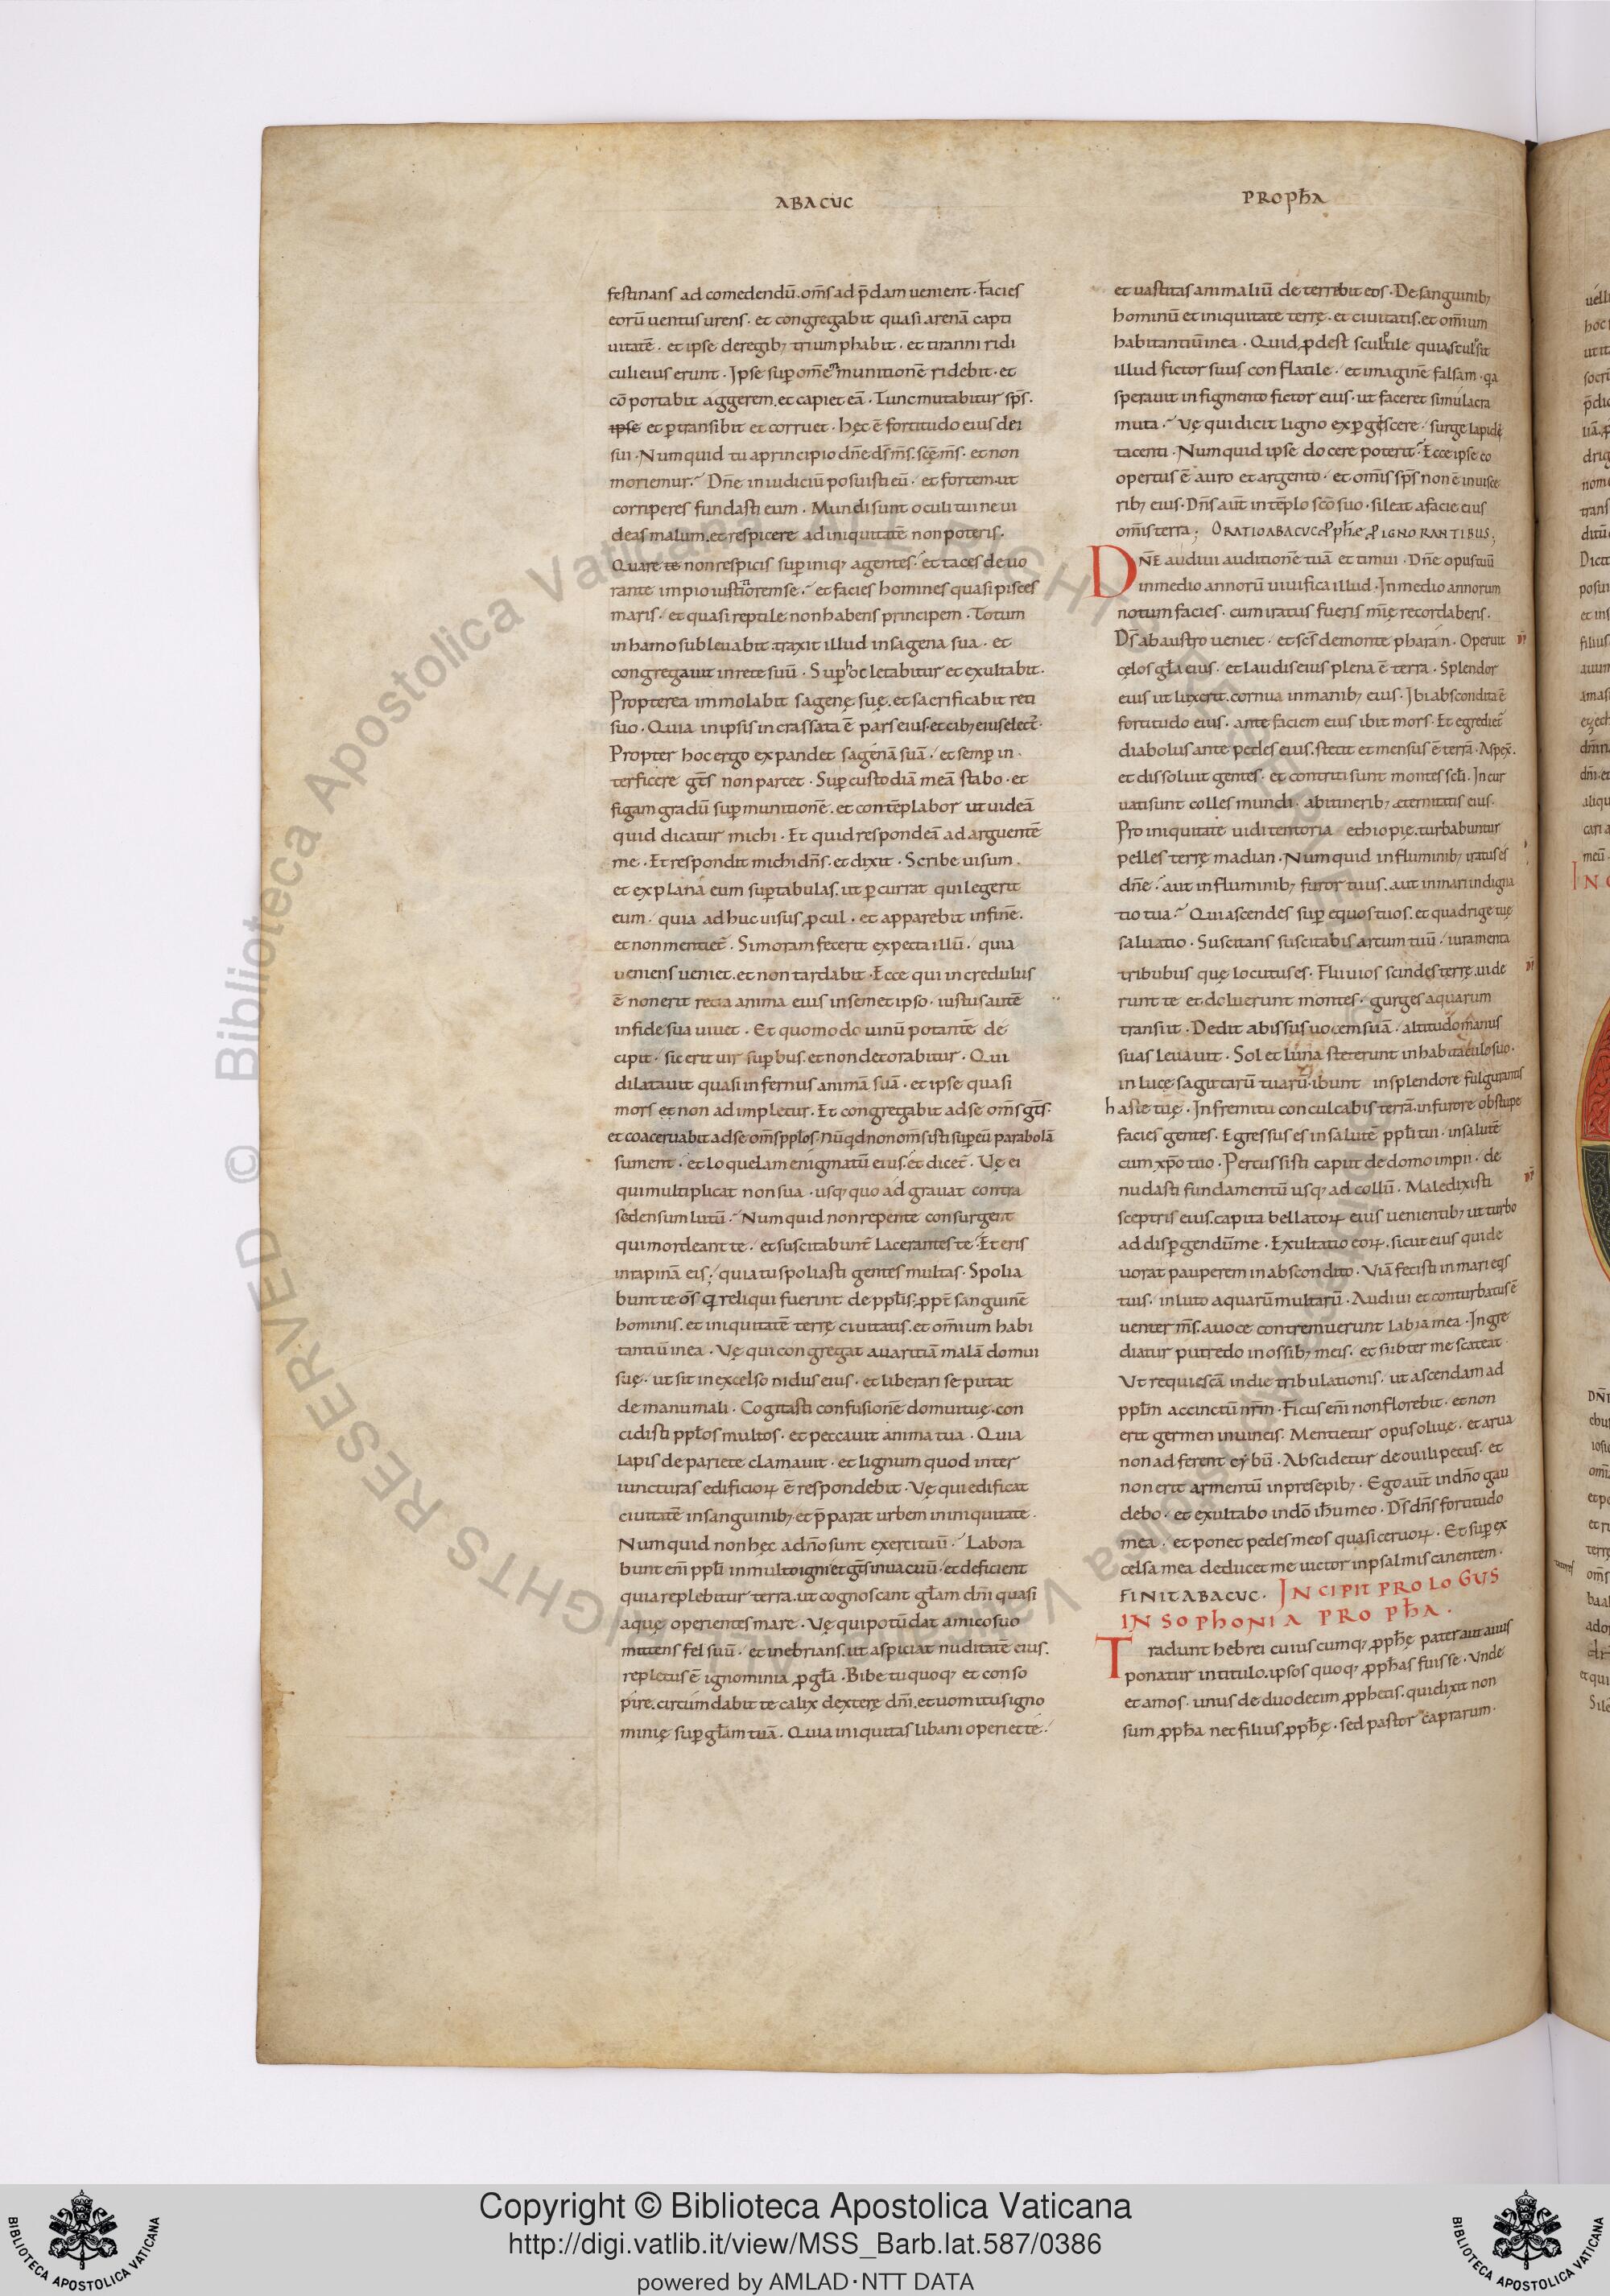 ABACUC
PROPħA
festinans ad comedendū. om̄s ad p̄dam uenient. Facies
eorū uentus urens. et congregabit quasi arenā capti
uitatē. et ipse de regib; triumphabit. et tiranni ridi
culi eius erunt. Ipse suꝑ om̄em munitionē ridebit. et
cōportabit aggerem. et capiet eā. Tunc mutabitur sp̄s.
ipse et ꝑtransibit et corruet. hęc ē fortitudo eius dei
sui. Numquid tu a principio dn̄e ds̄ m̄s. scē m̄s. et non
moriemur? Dn̄e in iudiciū posuisti eū. et fortem ut
corriperes fundasti eum. Mundi sunt oculi tui ne ui
deas malum. et respicere ad iniquitatē non poteris.
Quare te non respicis suꝑ iniq; agentes. et taces deuo
rante impio iustiorem se? et facies homines quasi pisces
maris. et quasi reptile non habens principem. Totum
in hamo subleuabit. traxit illud in sagena sua. et
congregauit in rete suū. Suꝑ hoc letabitur et exultabit.
Propterea immolabit sagenę suę. et sacrificabit reti
suo. Quia in ipsis incrassata ē pars eius. et cib; eius elect̄.
Propter hoc ergo expandet sagenā suā. et semꝑ in
terficere gt̄s non parcet. Suꝑ custodiā meā stabo. et
figam gradū suꝑ munitionē. et contēplabor ut uideā
quid dicatur michi. Et quid respondeā ad arguentē
me. Et respondit michi dn̄s. et dixit. Scribe uisum.
et explana eum suꝑ tabulas. ut ꝑcurrat qui legerit
eum. quia adhuc uisus ꝓcul. et apparebit in finē.
et non mentiet̄. Si moram fecerit expecta illū. quia
ueniens ueniet. et non tardabit. Ecce qui incredulus
ē non erit recta anima eius in semet ipso. iustus autē
in fide sua uiuet. Et quomodo uinū potantē de
cipit. sic erit uir suꝑbus. et non decorabitur. Qui
dilatauit quasi infernus animā suā. et ipse quasi
mors et non adimpletur. Et congregabit ad se om̄s gt̄s.
et coaceruabit ad se om̄s ppl̄os. Nūqd non om̄s isti suꝑ eū parabolā
sument. et loquelam enigmatū eius. et dicet̄. Vę ei
qui multiplicat non sua. usq; quo adgrauat contra
se densum lutū? Numquid non repente consurgent
qui mordeant te. et suscitabunt̄ lacerantes te? Et eris
in rapinā eis; quia tu spoliasti gentes multas. Spolia
bunt te om̄s q reliqui fuerint de ppl̄is. ꝓpt̄ sanguinē
hominis. et iniquitatē terrę ciuitatis. et om̄ium habi
tantiū in ea. Vę qui congregat auaritiā malā domui
suę. ut sit in excelso nidus eius. et liberari se putat
de manu mali. Cogitasti confusionē domui tuę. con
cidisti ppl̄os multos. et peccauit anima tua. Quia
lapis de pariete clamauit. et lignum quod inter
iuncturas edificioꝝ ē respondebit. Vę qui edificat
ciuitatē in sanguinib; et p̄parat urbem in iniquitate.
Numquid non hęc a dn̄o sunt exercituū? Labora
bunt eni̅ ppl̄i in multo igni et gt̄s in uacuū. et deficient
quia replebitur terra. ut cognoscant gl̄am dn̄i quasi
aquę operientes mare. Vę qui potū dat amico suo
mittens fel suū. et inebrians. ut aspiciat nuditatē eius.
repletus ē ignominia ꝓ gl̄a. Bibe tu quoq; et conso
pire. circumdabit te calix dexterę dn̄i. et uomitus igno
minię suꝑ gl̄am tuā. Quia iniquitas libani operiet te.
et uastitas animaliū deterrebit eos. De sanguinib;
hominū et iniquitate terrę. et ciuitatis. et om̄ium
habitantiū in ea. Quid ꝓdest sculptile quia sculpsit
illud fictor suus conflatile. et imaginē falsam. qa
sperauit in figmento fictor eius. ut faceret simulacra
muta? Vę qui dicit ligno expgescere. surge lapidi
tacenti. Numquid ipse docere poterit? Ecce ipse co
opertus ē auro et argento. et om̄is sp̄s non ē in uisce
rib; eius. Dn̄s aut̄ in tēplo scō suo. sileat a facie eius
om̄is terra; ORATIO ABACUC ꝓphæ ꝓ IGNORANTIBUS;
DN̄E audiui auditionē tuā et timui. Dn̄e opus tuū
in medio annorū uiuifica illud. In medio annorum
notum facies. cum iratus fueris mīę recordaberis.
Ds̄ ab austro ueniet. et scs̄ de monte pharan. Operuit
cęlos gl̄a eius. et laudis eius plena ē terra. Splendor
eius ut lux erit. cornua in manib; eius. Ibi abscondita ē
fortitudo eius. ante faciem eius ibit mors. Et egrediet̄
diabolus ante pedes eius. stetit et mensus ē terrā. Aspex̄.
et dissoluit gentes. et contriti sunt montes scl̄i. Incur
uati sunt colles mundi. ab itinerib; æternitatis eius.
Pro iniquitate uidi tentoria ethiopię. turbabuntur
pelles terrę madian. Numquid in fluminib; iratus es
dn̄e? aut in fluminib; furor tuus. aut in mari indigna
tio tua? Qui ascendes suꝑ equos tuos. et quadrige tuę
saluatio. Suscitans suscitabis arcum tuū. iuramenta
tribubus quę locutus es. Fluuios scindes terrę. uide
runt te et doluerunt montes. gurges aquarum
transiit. Dedit abissus uocem suā. altitudo manus
suas leuauit. Sol et luna steterunt in habitaculo suo.
in luce sagittarū tuarū. ibunt in splendore fulgurantis
hastę tuę. In fremitu conculcabis terrā. in furore obstupe
facies gentes. Egressus es in salutē ppl̄i tui. in salutē
cum xp̄o tuo. Percussisti caput de domo impii. de
nudasti fundamentū usq; ad collū. Maledixisti
sceptris eius. capita bellatoꝝ eius uenientib; ut turbo
ad disꝑgendū me. Exultatio eoꝝ. sicut eius qui de
uorat pauperem in abscondito. Viā fecisti in mari eqs
tuis. in luto aquarū multarū. Audiui et conturbatus ē
uenter m̄s. a uoce contremuerunt labia mea. Ingre
diatur putredo in ossib; meis. et subter me scateat.
Vt requiescā in die tribulationis. ut ascendam ad
ppl̄m accinctū nr̄m. Ficus eni̅ non florebit. et non
erit germen in uineis. Mentietur opus oliuę. et arua
non adferent cybū. Abscidetur de ouili pecus. et
non erit armentū in presepib;. Ego aut̄ in dn̄o gau
debo. et exultabo in dō ih̄u meo. Ds̄ dn̄s fortitudo
mea. et ponet pedes meos quasi ceruoꝝ. Et suꝑ ex
celsa mea deducet me uictor in psalmis canentem.
FINIT ABACUC. INCIPIT PROLOGUS
IN SOPHONIA PROPħA.
Tradunt hebrei cuiuscumq; ꝓphę pater aut auus
ponatur in titulo. ipsos quoq; ꝓphas fuisse. Vnde
et amos. unus de duodecim ꝓphetis. qui dixit non
sum ꝓpha nec filius ꝓphę. sed pastor caprarum.
© Biblioteca Apostolica Vaticana ALL RIGHTS RESERVED
Copyright © Biblioteca Apostolica Vaticana
http://digi.vatlib.it/view/MSS_Barb.lat.587/0386
powered by AMLAD·NTT DATA
BIBLIOTECA APOSTOLICA VATICANA
BIBLIOTECA APOSTOLICA VATICANA